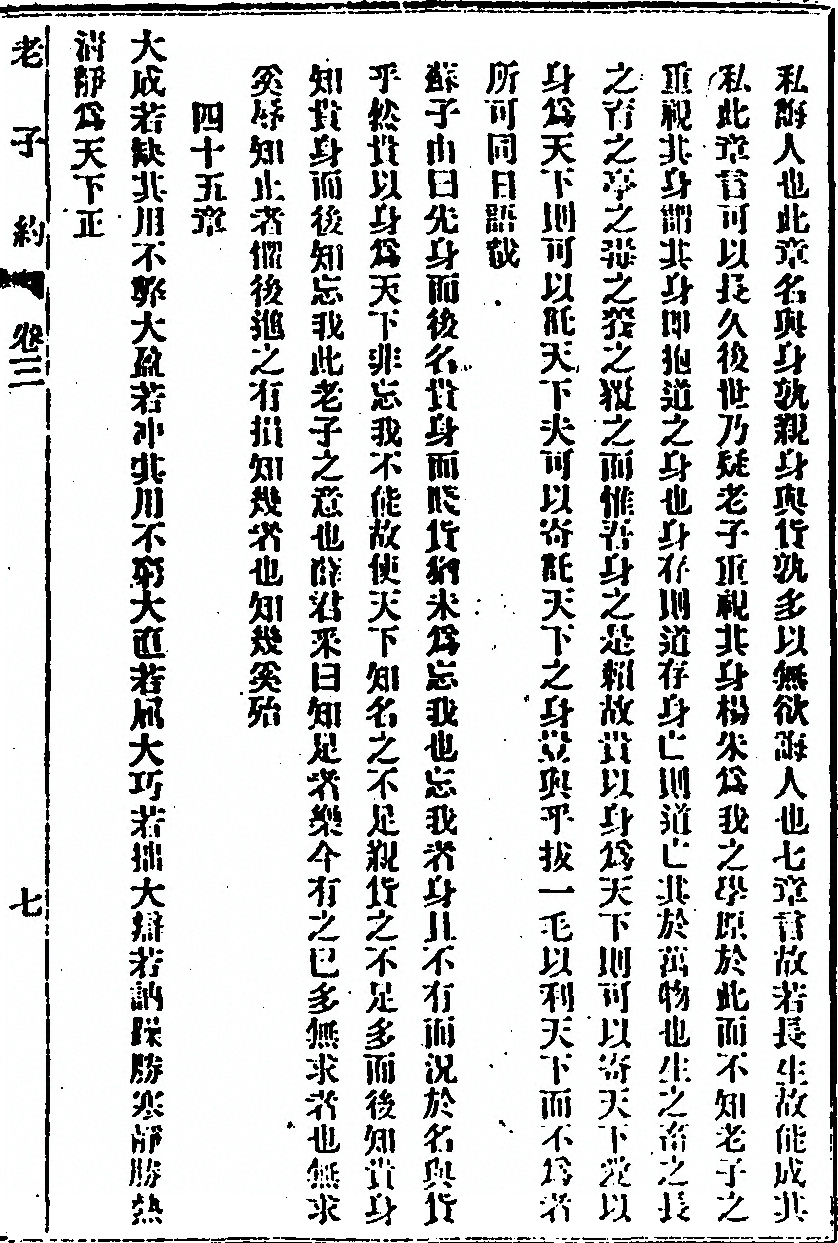 私誨人也此章名與身孰親身與貨孰多以無欲誨人也七章言故若長生故能成其
私此章言可以長久後世乃疑老子重視其身楊朱為我之學原於此而不知老子之
重視其身謂其身即抱道之身也身存則道存身亡則道亡其於萬物也生之畜之長
之育之亭之毒之養之覆之而惟吾身之是賴故貴以身為天下則可以寄天下愛以
身為天下則可以託天下夫可以寄託天下之身豈與乎拔一毛以利天下而不為者
所可同日語哉
蘇子由曰先身而後名貴身而賤貨猶未為忘我也忘我者身且不有而況於名與貨
乎然貴以身為天下非忘我不能故使天下知名之不足親貨之不足多而後知貴身
知貴身而後知忘我此老子之意也薛君采曰知足者樂今有之已多無求者也無求
奚辱知止者懼後進之有損知幾者也知幾奚殆
四十五章
大成若缺其用不弊大盈若沖其用不窮大直若屈大巧若拙大辯若訥躁勝寒靜勝熱
清靜為天下正
老子約
卷三
七